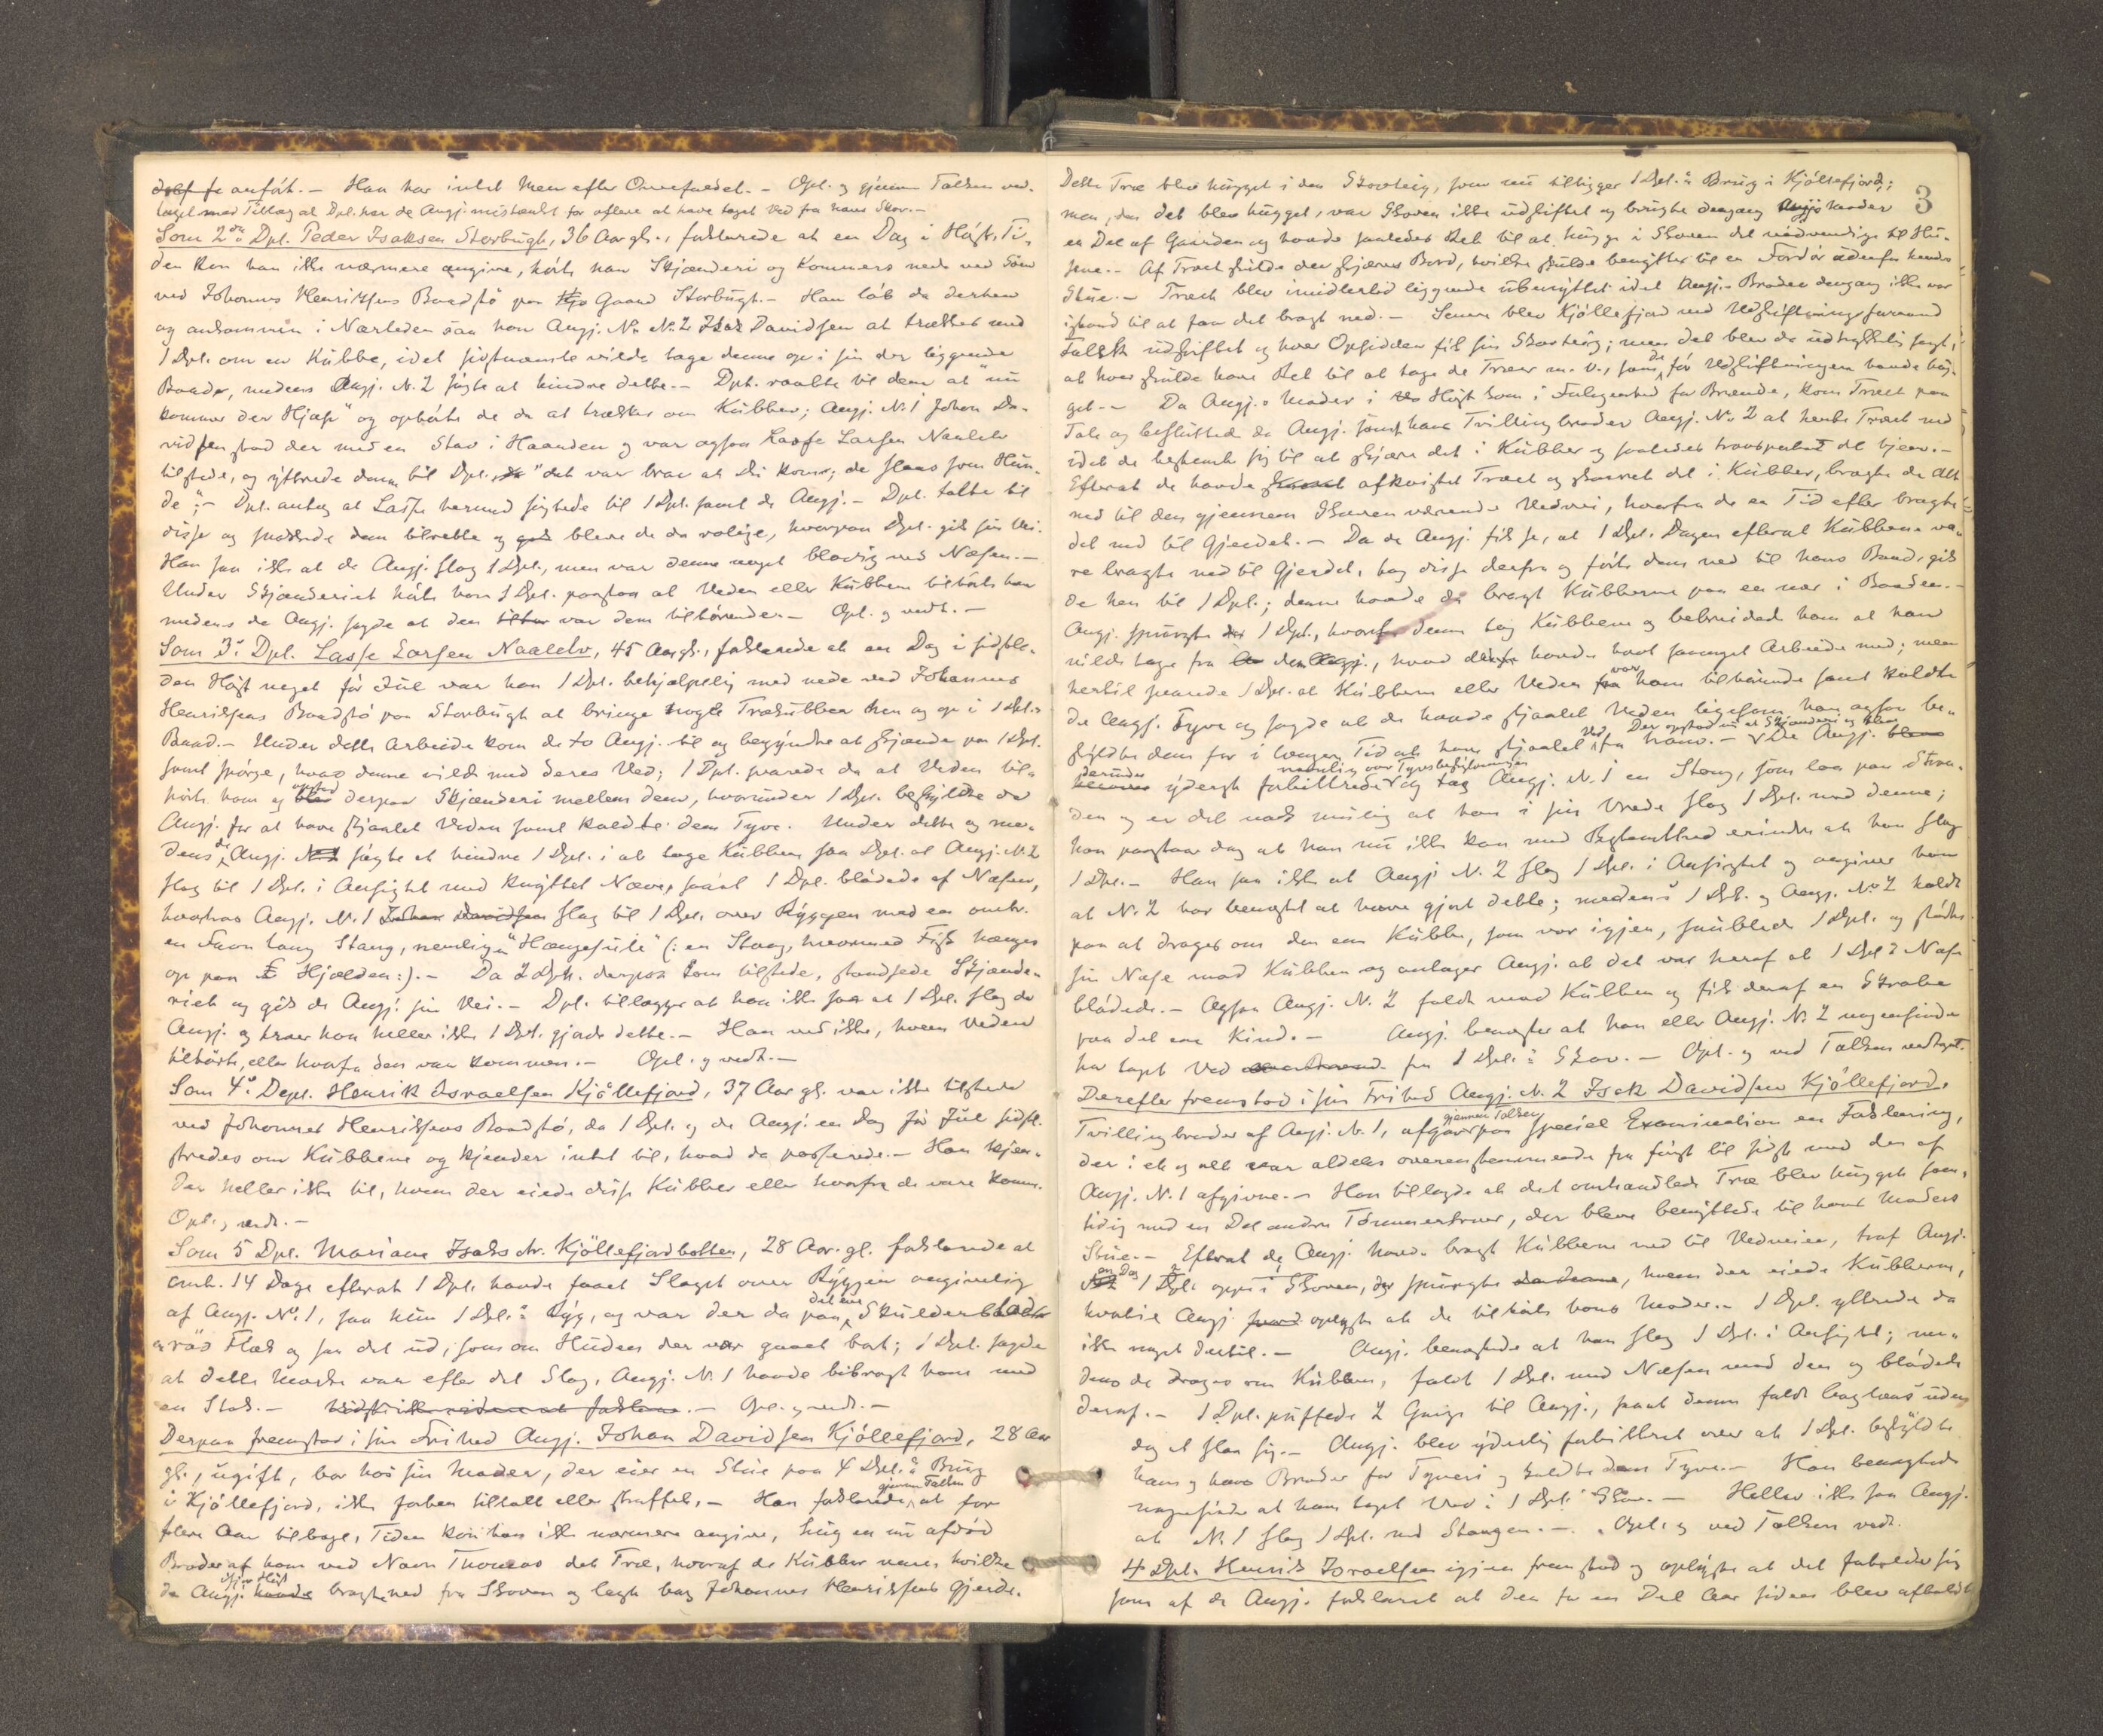 anført. – Han har intet Men efter Overfaldet. – Opl. og gjennem Tolken ved-
taget med Tillæg at Dpt. har de Angj. mistænkt for oftere at have taget Ved fra hans Skov. –
Som 2det Dpt. Peder Isaksen Storbugt, 36 Aar gl., forklarede at en Dag i Høst, Ti-
den kan han ikke nærmere angive, hørte han Skjænderi og Kommers nede ved Søen
ved Johannes Henriksens Baadstø paa Gaard Storbugt. – Han løb da derhen
og ankommen i Nærheden saa han Angj. No 2 Isak Davidsen at trækkes med
1 Dpt. om en Kubbe, idet sidstnævnte vilde tage denne op i sin der liggende
Baad, medens Angj. N. 2 søgte at hindre dette. – Dpt. raabte til dem at "nu
kommer der Hjælp" og ophørte de da at trækkes om Kubben; Angj. N. 1 Johan Da-
vidsen stod der med en Stav i Haanden og var ogsaa Lasse Larsen Naalelv
tilstede, og ytrede denne til Dpt. "det var bra at Du kom; de slaas som Hun-
de"; – Dpt. antog at Lasse hermed sigtede til 1 Dpt. samt de Angj. – Dpt. talte til
disse og snakkede dem tilrette og bleve de da rolige, hvorpaa Dpt. gik sin Vei.
Han saa ikke at de Angj. slog 1 Dpt., men var denne noget blodig ved Næsen. –
Under Skjænderiet hørte han 1 Dpt. paastaa at Veden eller Kubben tilhørte ham
medens de Angj. sagde at den var dem tilhørende. – Opl. og vedt. –
Som 3. Dpt. Lasse Larsen Naalelv, 45 Aar gl., forklarede at en Dag i sidstle-
den Høst noget før Jul var han 1 Dpt. behjælpelig med nede ved Johannes
Henriksens Baadstø paa Storbugt at bringe nogle Trækubber hen og op i 1 Dpt.s
Baad. – Under dette Arbeide kom de to Angj. til og begyndte at skjænde paa 1 Dpt.
samt spørge, hvad denne vilde med deres Ved; 1 Dpt. svarede da at Veden til-
hørte ham og opstod derpaa Skjænderi mellem dem, hvorunder 1 Dpt. beskyldte de
Angj. for at have stjaalet Veden samt kaldte dem Tyve. Under dette og me-
dens de Angj. søgte at hindre 1 Dpt. i at tage Kubben saa Dpt. at Angj. N. 2
slog til 1 Dpt. i Ansigtet med knyttet Næve, saa at 1 Dpt. blødede af Næsen,
hvorhos Angj. N. 1 Johan Davidsen slog til 1 Dpt. over Ryggen med en omtr.
en Favn lang Stang, nemlig en "Hængesule" (: en Stang, hvormed Fisk hænges
op paa Hjælden :). – Da 2 Dpt. derpaa kom tilstede, standsede Skjænde-
riet og gik de Angj. sin Vei. – Dpt. tillægger at han ikke saa at 1 Dpt. slog de
Angj. og tror han heller ikke 1 Dpt. gjorde dette. – Han ved ikke, hvem Veden
tilhørte, eller hvorfra den var kommen. – Opl. og vedt. –
Som 4. Dept. Henrik Israelsen Kjøllefjord, 37 Aar gl. var ikke tilstede
ved Johannes Henriksens Baadstø, da 1 Dpt. og de Angj. en Dag før Jul sidstl.
stredes om Kubbene og kjender intet til, hvad da passerede. – Han kjen-
der heller ikke til, hvem der eiede disse Kubber eller hvorfra de vare komne.
Opl. og vedt. –
Som 5 Dpt. Mariane Isaksdtr. Kjøllefjordbotten, 28 Aar gl. forklarede at
omtr. 14 Dage efterat 1 Dpt. havde faaet Slaget over Ryggen angivelig
af Angj. No 1, saa hun 1 Dpt.s Ryg, og var der da paa det ene Skulderblad
rød Flek og saa det ud, som om Huden der var gaaet bort; 1 Dpt. sagde
at dette Mærke var efter det Slag, Angj. N. 1 havde bibragt ham med
en Stok. – Vidste ikke videre at forklare. – Opl. og vedt. –
Derpaa fremstod i sin Frihed Angj. Johan Davidsen Kjøllefjord, 28 Aar
gl., ugift, bor hos sin Moder, der eier en Stue paa 4 Dpt.s Brug
i Kjøllefjord, ikke forhen tiltalt eller straffet. – Han forklarede gjennem Tolken at for
flere Aar tilbage, Tiden kan han ikke nærmere angive, hug en nu afdød
Broder af ham ved Navn Thomas det Træ, hvoraf de Kubber vare, hvilke
de Angj. ifjor Høst havde bragt ned fra Skoven og lagt bag Johannes Henriksens Gjerde.
3
Dette Træ blev hugget i den Skovteig, som nu tilligger 1 Dpt.s Brug i Kjøllefjord;
men, da det blev hugget, var Skoven ikke udskiftet og brugte dengang Angj.s Moder
en Del af Gaarden og havde saaledes Ret til at hugge i Skoven det nødvendige til Hu-
sene. – Af Træet skulde der skjæres Bord, hvilke skulde benyttes til en Fordør udenfor hendes
Stue. – Træet blev imidlertid liggende ubenyttet idet Angj.s Broder dengang ikke var
istand til at faa det bragt ned. – Senere blev Kjøllefjord ved Udskiftningsformand
Falck udskiftet og hver Opsidder fik sin Skovteig; men det blev da udtrykkelig sagt,
at hver skulde have Ret til at tage de Træer m. v., som de før Udskiftningen havde hug-
get. – Da Angj.s Moder i Høst kom i Forlegenhed for Brænde, kom Træet paa
Tale og besluttede da Angj. samt hans Tvillingbroder Angj. No. 2 at hente Træet ned
idet de bestemte sig til at skjære det i Kubber og saaledes transportere det hjem. –
Efterat de havde afkvistet Træet og skaaret det i Kubber, bragte de Alt
ned til den gjennem Skoven værende Vedvei, hvorfra de en Tid efter bragte
det ned til Gjerdet. – Da de Angj. fik se, at 1 Dpt. Dagen efterat Kubbene va-
re bragte ned til Gjerdet, tog disse derfra og førte dem ned til hans Baad, gik
de hen til 1 Dpt.; denne havde da bragt Kubberne paa en nær i Baaden. –
Angj. spurgte 1 Dpt., hvorfor denne tog Kubbene og bebreidede ham at han
vilde tage fra dem, hvad de havde havt saameget Arbeide med; men
hertil svarede 1 Dpt. at Kubben eller Veden var ham tilhørende samt kaldte
de Angj. Tyve og sagde at de havde stjaalet Veden ligesom han ogsaa be-
skyldte dem for i længere Tid at have stjaalet Ved fra ham. – Der opstod nu et Skjænderi og bleve De Angj.
derunder yderst forbittrede navnlig over Tyvsbeskyldningen og tog Angj. N. 1 en Stang, som laa paa Stran-
den og er det nok mulig at han i sin Vrede slog 1 Dpt. med denne;
han paastaar dog at han nu ikke kan med Bestemthed erindre at han slog
1 Dpt. – Han saa ikke at Angj. N. 2 slog 1 Dpt. i Ansigtet og angiver han
at N. 2 har benægtet at have gjort dette; medens 1 Dpt. og Angj. No 2 holdt
paa at drages om den ene Kubbe, som var igjen, snublede 1 Dpt. og stødte
sin Næse mod Kubben og antager Angj. at det var heraf at 1 Dpt.s Næse
blødede. – Ogsaa Angj. N. 2 faldt mod Kubben og fik deraf en Skrabe
paa det ene Kind. – Angj. benægter at han eller Angj. N. 2 nogensinde
har taget Ved fra 1 Dpt.s Skov. – Opl. og ved Tolken vedtaget.
Derefter fremstod i sin Frihed Angj. N. 2 Isak Davidsen Kjøllefjord,
Tvillingbroder af Angj. N. 1, afgav gjennem Tolken paa speciel Examination en Forklaring,
der i et og alt var aldeles overensstemmende fra først til sidst med den af
Angj. N. 1 afgivne. – Han tillagde at det omhandlede Træ blev hugget sam-
tidig med en Del andre Tømmertrær, der bleve benyttede til hans Moders
Stue. – Efterat de Angj. havde bragt Kubbene ned til Vedveien, traf Angj.
en Dag 1 Dpt. oppe i Skoven, der spurgte, hvem der eiede Kubberne,
hvortil Angj. oplyste at de tilhørte hans Moder. – 1 Dpt. yttrede da
ikke noget dertil. – Angj. benægtede at han slog 1 Dpt. i Ansigtet; me-
dens de droges om Kubben, faldt 1 Dpt. med Næsen mod den og blødede
deraf. – 1 Dpt. puffede 2 Gange til Angj., saa at denne faldt baglæns uden
dog at slaa sig. – Angj. blev yderlig forbittret over at 1 Dpt. beskyldte
ham og hans Broder for Tyveri og kaldte dem Tyve. – Han benægtede
nogensinde at have taget Ved i 1 Dpt.s Skov. – Heller ikke saa Angj.
at N. 1 slog 1 Dpt. med Stangen. – Opl. og ved Tolken vedt.
4 Dpt. Henrik Israelsen igjen fremstod og oplyste at det forholder sig
som af de Angj. forklaret at der for en Del Aar siden blev afholdt